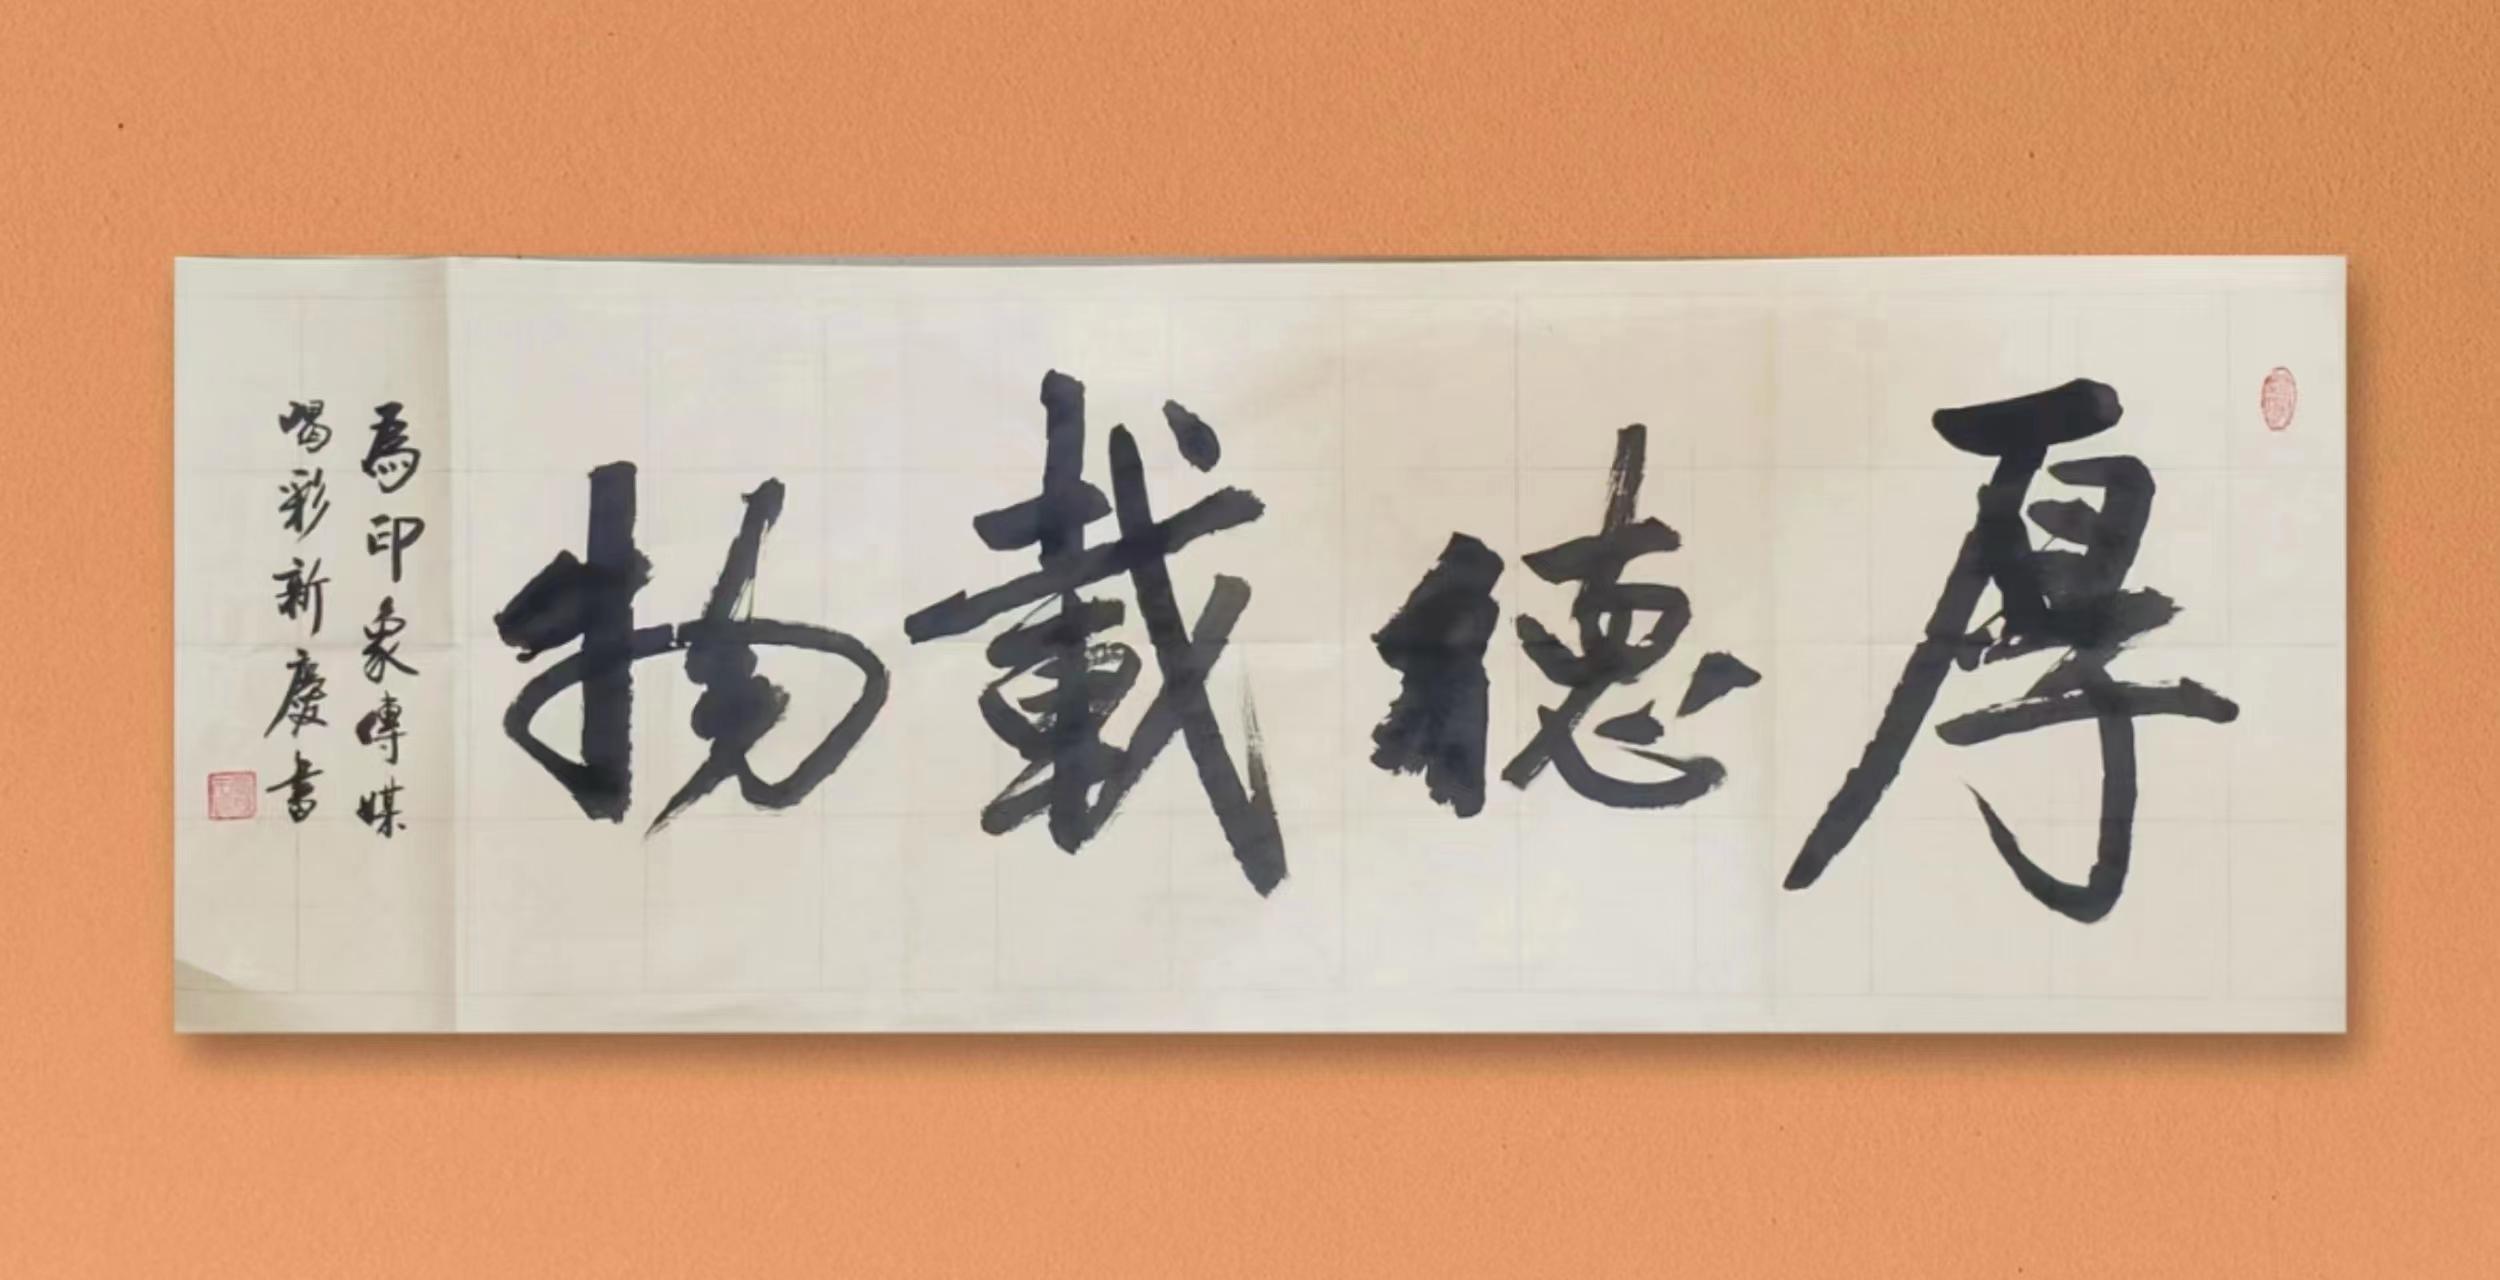 厚德載物
為印象傳媒
喝彩新慶書